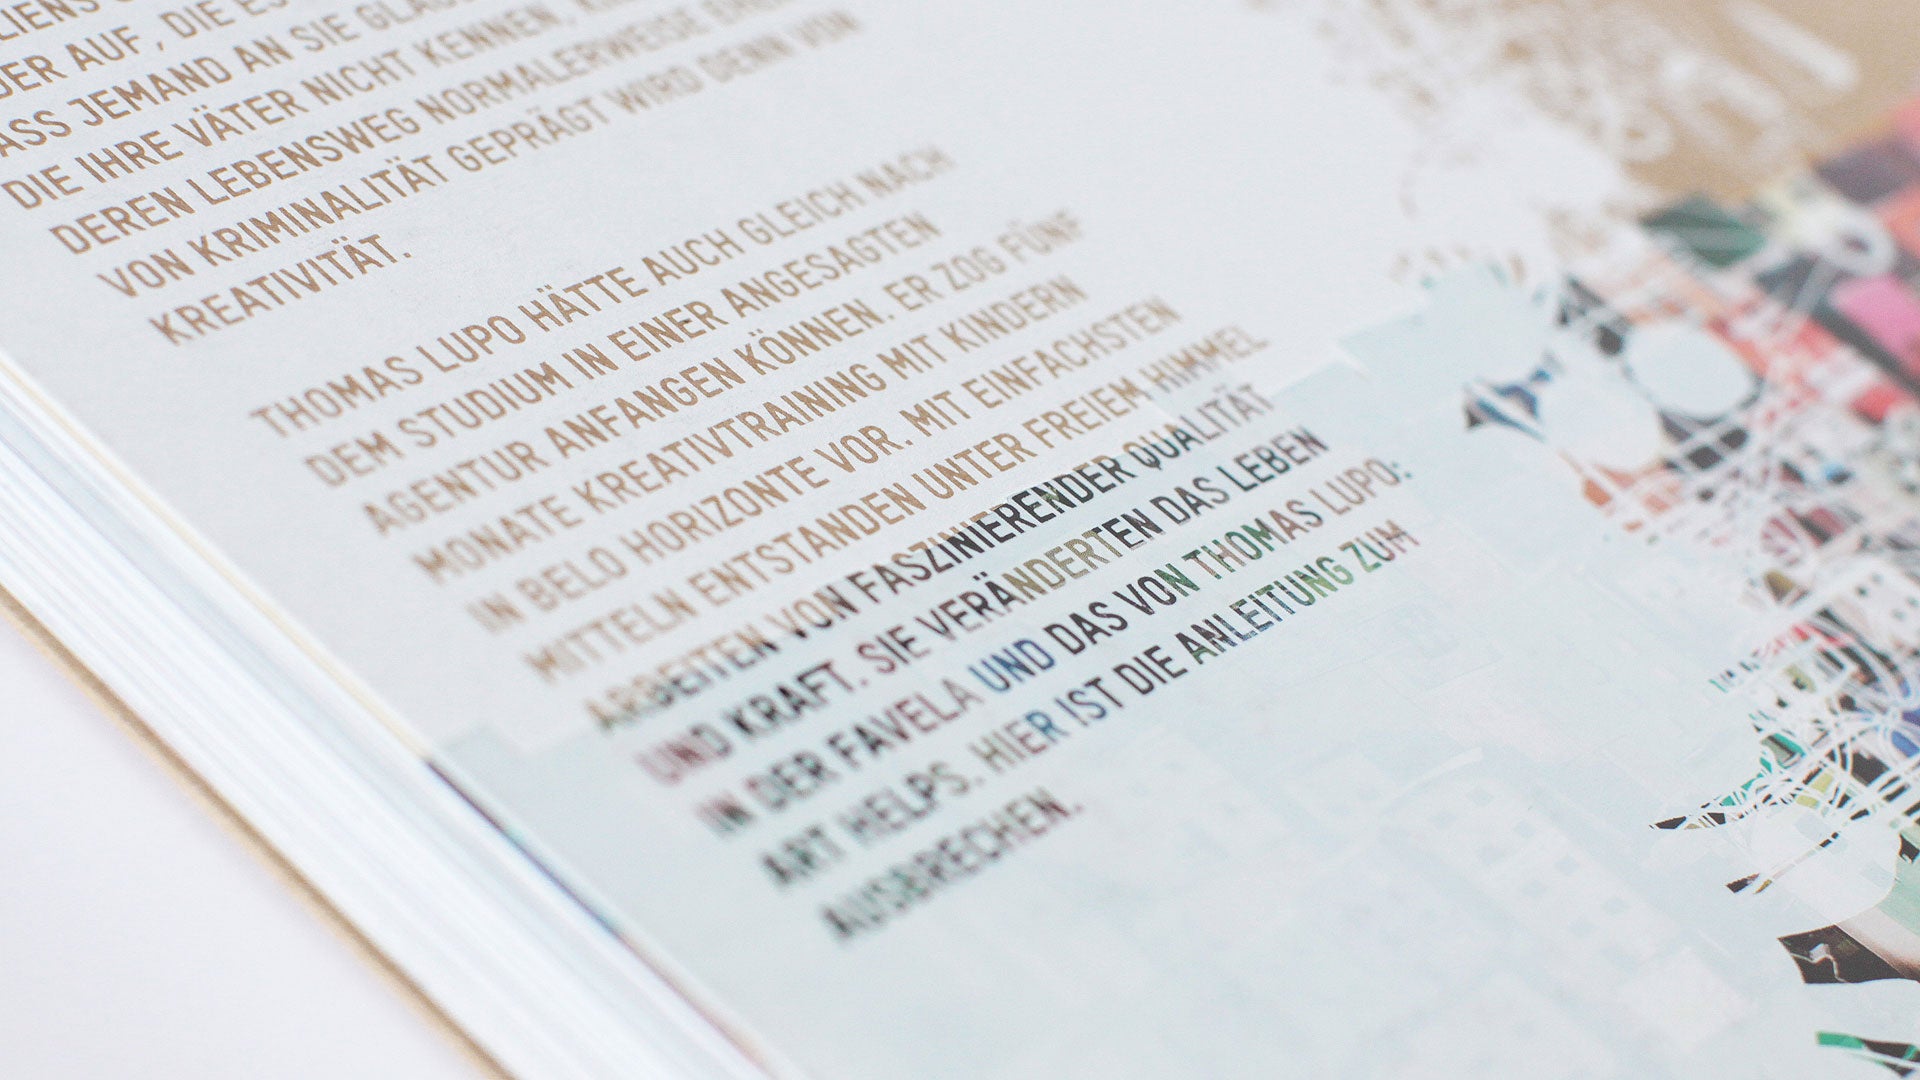 DER AUF, DIE ES
ASS JEMAND AN SIE
DIE IHRE VÄTER NICHT KENNEN,
DEREN LEBENSWEG NORMALERWEISE
VON KRIMINALITÄT GEPRÄGT WIRD DENN VON
KREATIVITÄT.
THOMAS LUPO HÄTTE AUCH GLEICH NACH
DEM STUDIUM IN EINER ANGESAGTEN
AGENTUR ANFANGEN KÖNNEN. ER ZOG FÜNF
MONATE KREATIVTRAINING MIT KINDERN
IN BELO HORIZONTE VOR. MIT EINFACHSTEN
MITTELN ENTSTANDEN UNTER FREIEM HIMMEL
ARBEITEN VON FASZINIERENDER QUALITÄT
UND KRAFT. SIE VERÄNDERTEN DAS LEBEN
IN DER FAVELA UND DAS VON THOMAS LUPO:
ART HELPS. HIER IST DIE ANLEITUNG ZUM
AUSBRECHEN.